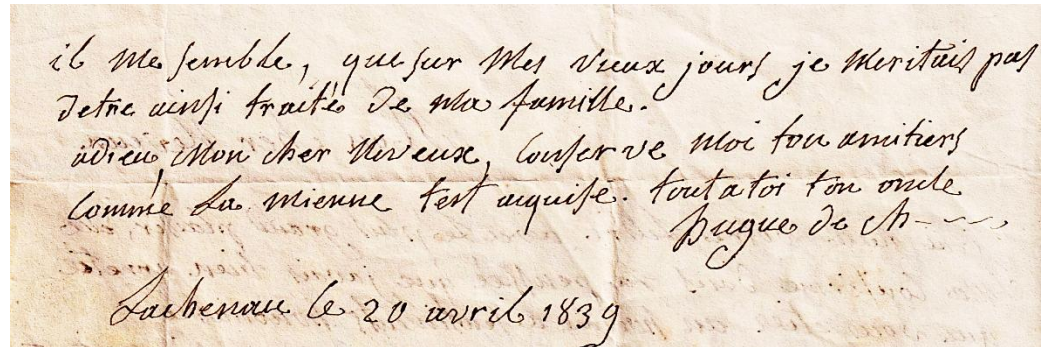 il me semble, que sur mes vieux jours je meritais pas
detre ainsi traité de ma famille.
adieu, mon cher neveux, conserve moi ton amitiers
comme la mienne test aquise. tout a toi ton oncle
hugue de ch
Lachenau le 20 avril 1839